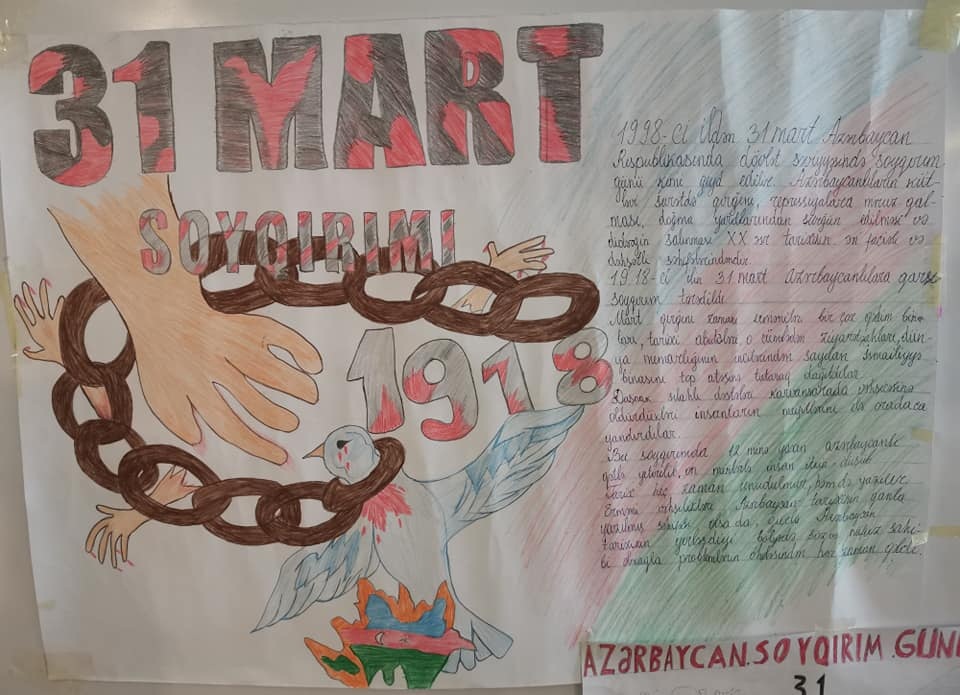 31 MART
SOYQIRIMI
1918
1998-ci ildən 31 mart Azərbaycan
Respublikasında dövlət səviyyəsində soyqırım
günü kimi qeyd edilir. Azərbaycanlıların küt-
ləvi surətdə qırğını, repressiyalara məruz qal-
ması, doğma yurdlarından sürgün edilməsi və
salınması XX əsr tarixinin ən faciəli və
dəhşətli səhifələrindəndir.
1918-ci ilin 31 mart azərbaycanlılara qarşı
soyqırım törədildi.
Mart qırğını zamanı ermənilər bir çox qədim bina-
ları, tarixi abidələri, o cümlədən ziyarətgahları, dün-
ya memarlığının incilərindən sayılan İsmailiyyə
binasını top atəşinə tutaraq dağıtdılar.
Daşnak silahlı dəstələri karvansarada vəhşicəsinə
öldürdükləri insanların meyitlərini də oradaca
yandırdılar.
Bu soyqırımında 12 minə yaxın azərbaycanlı
qətlə yetirilib, on minlərlə insan itkin düşüb
Tarix heç zaman unudulmur, həm də yazılır.
Erməni vəhşilikləri Azərbaycan tarixinin qanla
yazılmış səhifəsi olsa da, Azərbaycan
tarixinin yerləşdiyi bölgədə
problemlərin öhdəsindən hər zaman gəlib.
AZƏRBAYCAN.SOYQIRIM.GÜNÜ
31